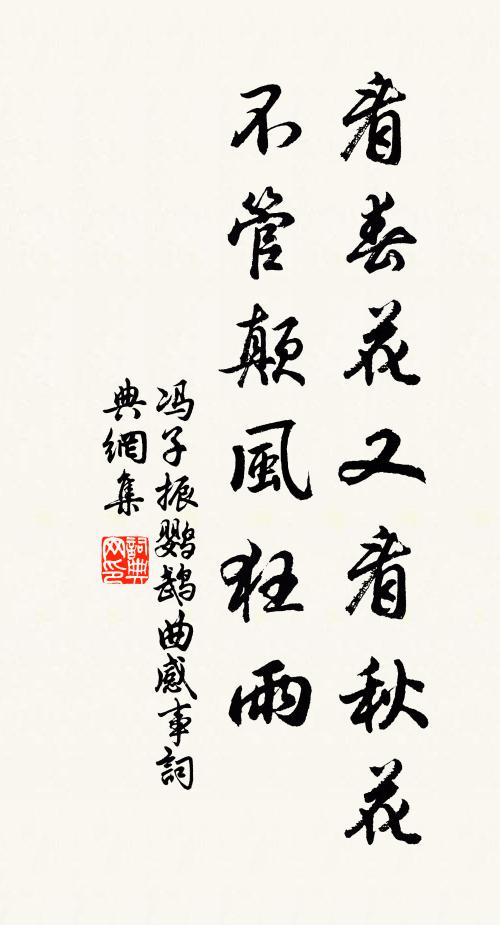 看春花又看秋花
不管顛風狂雨
冯子振鹦鹉曲感事詞
典網集
詞典網印